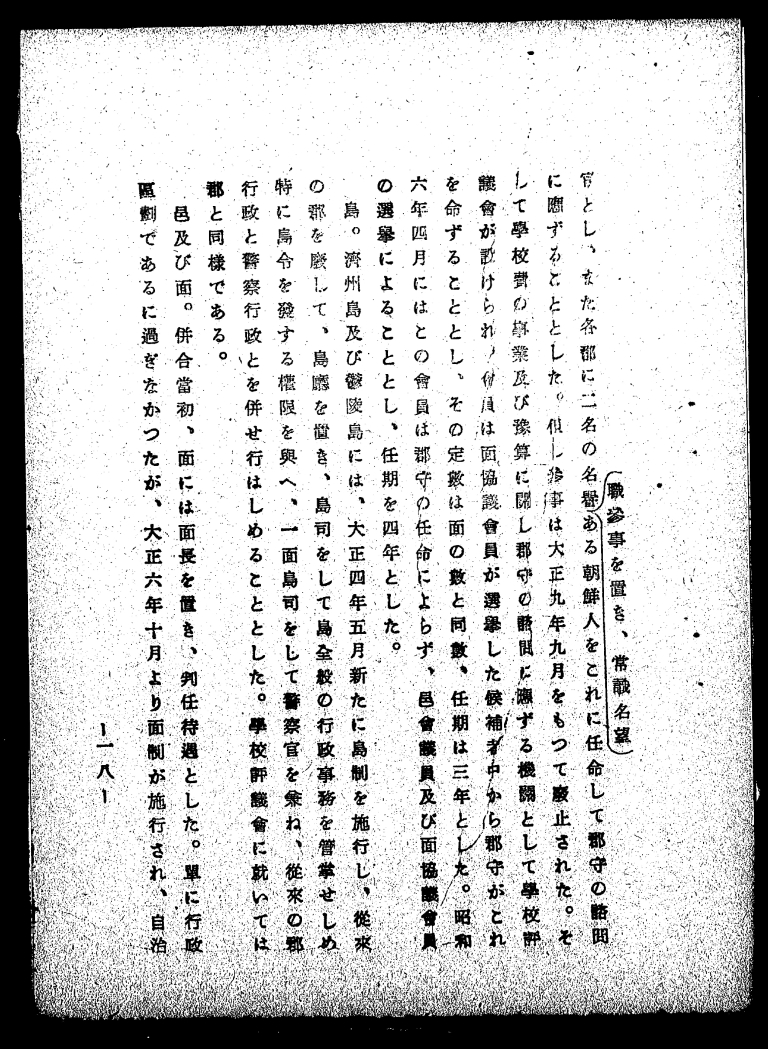 職参事を置き、常識名望
官とし、また各郡に二名の名譽ある朝鮮人をこれに任命して郡守の諮問
に應ずることとした。但し参事は大正九年九月をもつて廢止された。そ
して學校費の事業及び豫算に關し郡守の諮問に應ずる機關として學校評
議會が設けられ、會員は面協議會員が選擧した候補者中から郡守がこれ
を命ずることとし、その定數は面の數と同數、任期は三年とした。昭和
六年四月にはこの會員は郡守の任命によらず、邑會議員及び面協議會員
の選擧によることとし、任期を四年とした。
島。濟州島及び鬱陵島には、大正四年五月新たに島制を施行し、從來
の郡を廢して、島廳を置き、島司をして島全般の行政事務を管掌せしめ
特に島令を發する權限を與へ、一面島司をして警察官を兼ね、從來の郡
行政と警察行政とを併せ行はしめることとした。學校評議會に就いては
郡と同様である。
邑及び面。併合當初、面には面長を置き、判任待遇とした。單に行政
區劃であるに過ぎなかつたが、大正六年十月より面制が施行され、自治
—一八—